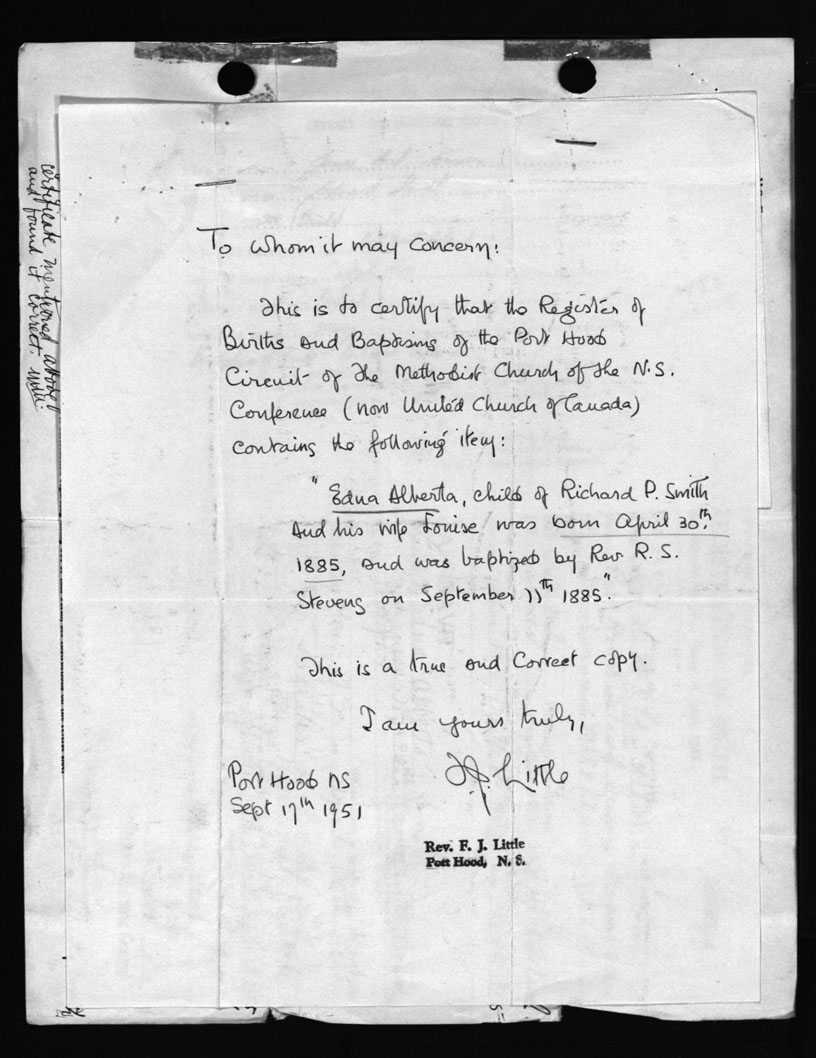 certificate mentioned above
and found it correct.
To whom it may concern:
This is to certify that the Register of
Births and Baptisms of the Port Hood
Circuit of the Methodist Church of the N.S.
Conference (now United Church of Canada)
contains the following item:
"Edna Alberta, child of Richard P. Smith
and his wife Louise was born April 30th.
1885, and was baptized by Rev R. S.
Stevens on September 11th 1885."
This is a true and correct copy.
I am yours truly,
F.J. Little
Port Hood NS
Sept 17th 1951
Rev. F. J. Little
Port Hood, N. S.